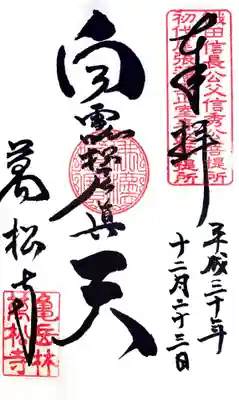 奉拝
織田信長公父信秀公菩提所
初代尾張藩主正室菩提所
平成三十年
十二月二十三日
白雪稲荷真天
萬松寺
亀岳林
萬松寺